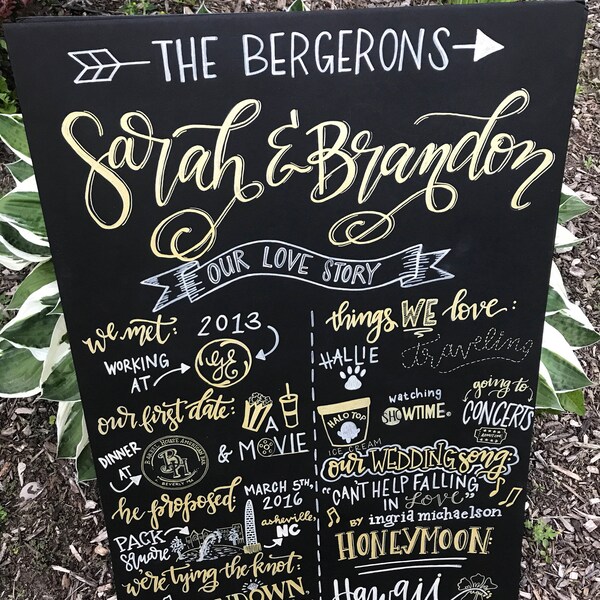 THE BERGERONS
Sarah & Brandon
OUR LOVE STORY
we met: 2013
WORKING
AT
GE
our first date:
DINNER
AT
BEVERLY MA
& A
MOVIE
he proposed:
MARCH 5TH,
2016
PACK
square
asheville,
NC
we're tying the knot:
things WE love:
HALLIE
traveling
HALO TOP
ICE CREAM
watching
SHOWTIME®
going to
CONCERTS
our WEDDING song:
"CAN'T HELP FALLING
in Love"
BY ingrid michaelson
HONEYMOON:
Hawaii